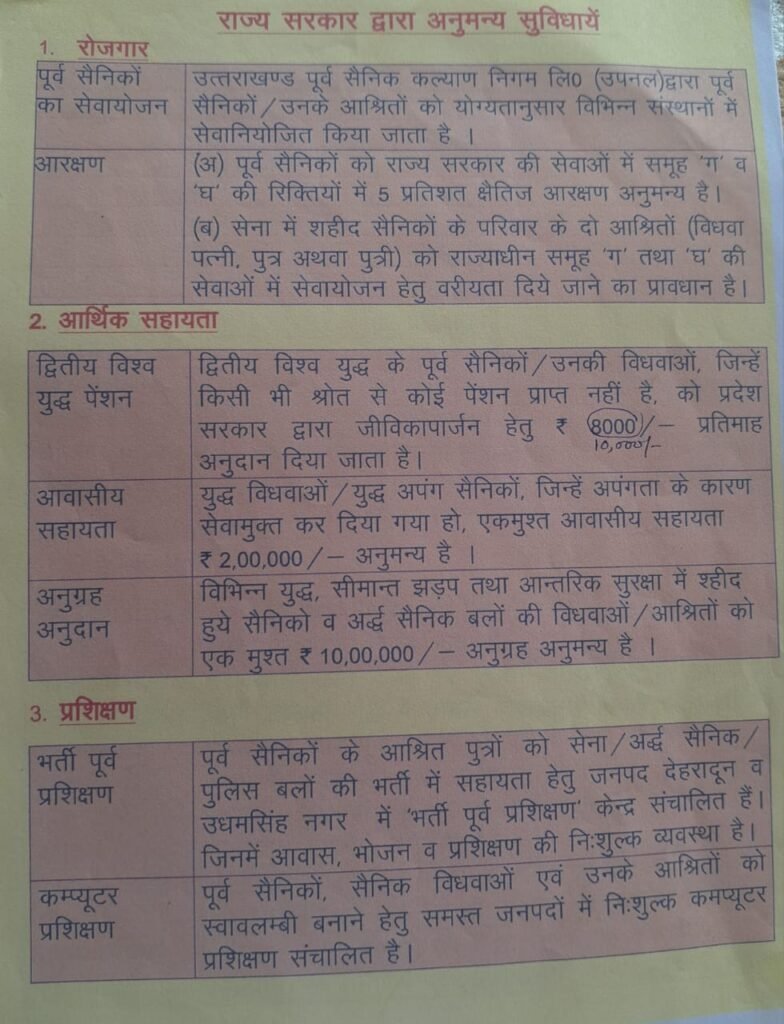 राज्य सरकार द्वारा अनुमन्य सुविधायें
1. रोजगार
पूर्व सैनिकों
का सेवायोजन
उत्तराखण्ड पूर्व सैनिक कल्याण निगम लि0 (उपनल)द्वारा पूर्व
सैनिकों/उनके आश्रितों को योग्यतानुसार विभिन्न संस्थानों में
सेवानियोजित किया जाता है ।
आरक्षण
(अ) पूर्व सैनिकों को राज्य सरकार की सेवाओं में समूह 'ग' व
'घ' की रिक्तियों में 5 प्रतिशत क्षैतिज आरक्षण अनुमन्य है।
(ब) सेना में शहीद सैनिकों के परिवार के दो आश्रितों (विधवा
पत्नी, पुत्र अथवा पुत्री) को राज्याधीन समूह 'ग' तथा 'घ' की
सेवाओं में सेवायोजन हेतु वरीयता दिये जाने का प्रावधान है।
2. आर्थिक सहायता
द्वितीय विश्व
युद्ध पेंशन
द्वितीय विश्व युद्ध के पूर्व सैनिकों/उनकी विधवाओं, जिन्हें
किसी भी श्रोत से कोई पेंशन प्राप्त नहीं है, को प्रदेश
सरकार द्वारा जीविकापार्जन हेतु ₹ 8000/– प्रतिमाह
10,000/-
अनुदान दिया जाता है।
आवासीय
सहायता
युद्ध विधवाओं/युद्ध अपंग सैनिकों, जिन्हें अपंगता के कारण
सेवामुक्त कर दिया गया हो, एकमुश्त आवासीय सहायता
₹ 2,00,000/– अनुमन्य है ।
अनुग्रह
अनुदान
विभिन्न युद्ध, सीमान्त झड़प तथा आन्तरिक सुरक्षा में श्हीद
हुये सैनिको व अर्द्ध सैनिक बलों की विधवाओं/आश्रितों को
एक मुश्त ₹ 10,00,000/– अनुग्रह अनुमन्य है ।
3. प्रशिक्षण
भर्ती पूर्व
प्रशिक्षण
पूर्व सैनिकों के आश्रित पुत्रों को सेना/अर्द्ध सैनिक/
पुलिस बलों की भर्ती में सहायता हेतु जनपद देहरादून व
उधमसिंह नगर में 'भर्ती पूर्व प्रशिक्षण' केन्द्र संचालित हैं।
जिनमें आवास, भोजन व प्रशिक्षण की निःशुल्क व्यवस्था है।
कम्प्यूटर
प्रशिक्षण
पूर्व सैनिकों, सैनिक विधवाओं एवं उनके आश्रितों को
स्वावलम्बी बनाने हेतु समस्त जनपदों में निःशुल्क कमप्यूटर
प्रशिक्षण संचालित है।